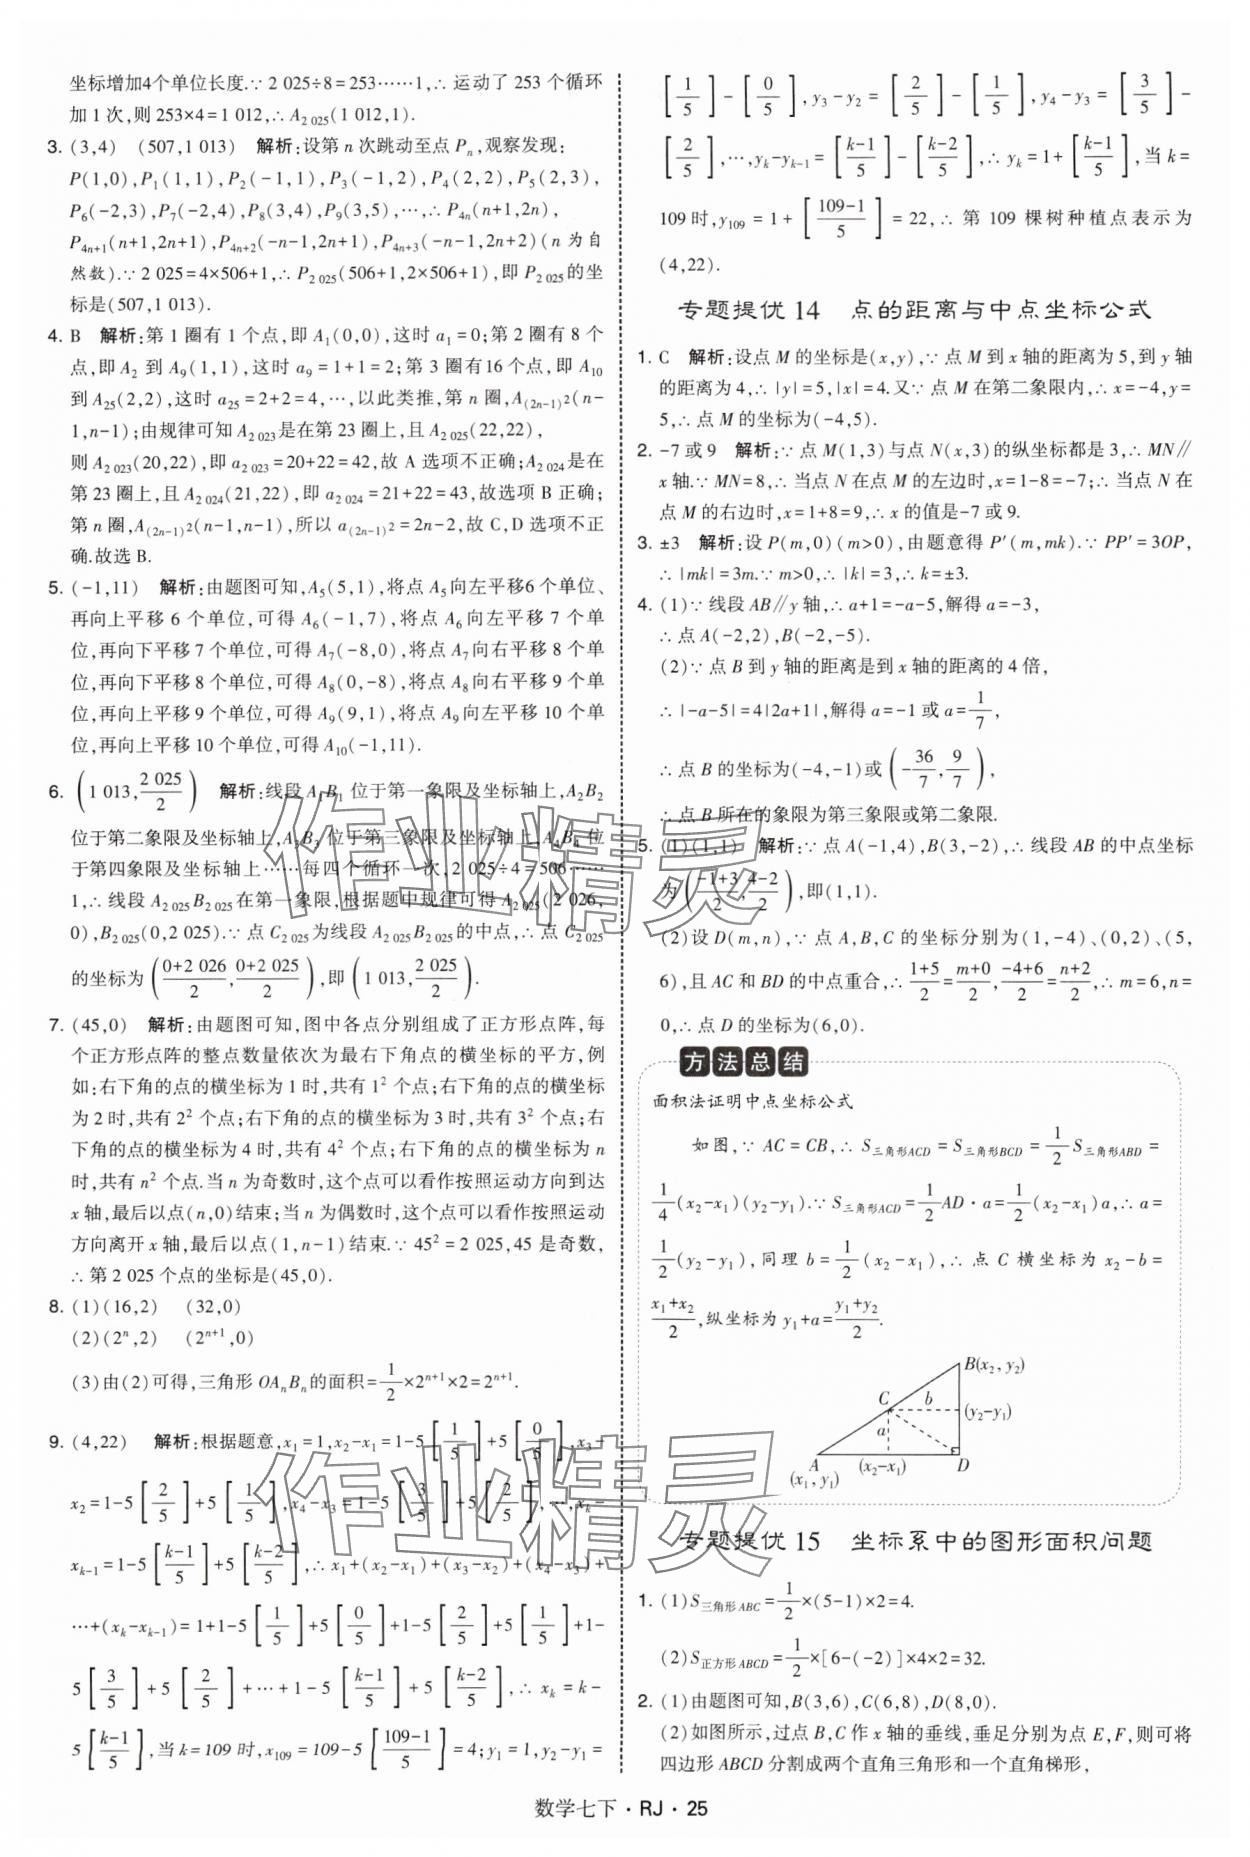 坐标增加4个单位长度.∵ 2 025÷8=253……1,∴ 运动了 253 个循环
加 1 次,则 253×4=1 012,∴ A₂ ₀₂₅(1 012,1).
3. (3,4) (507,1 013) 解析:设第 n 次跳动至点 Pₙ,观察发现:
P(1,0),P₁(1,1),P₂(-1,1),P₃(-1,2),P₄(2,2),P₅(2,3),
P₆(-2,3),P₇(-2,4),P₈(3,4),P₉(3,5),…,∴ P₄ₙ(n+1,2n),
P₄ₙ₊₁(n+1,2n+1),P₄ₙ₊₂(-n-1,2n+1),P₄ₙ₊₃(-n-1,2n+2)(n 为自
然数).∵ 2 025=4×506+1,∴ P₂ ₀₂₅(506+1,2×506+1),即 P₂ ₀₂₅的坐
标是(507,1 013).
4. B 解析:第 1 圈有 1 个点,即 A₁(0,0),这时 a₁=0;第 2 圈有 8 个
点,即 A₂ 到 A₉(1,1),这时 a₉=1+1=2;第 3 圈有16 个点,即 A₁₀
到 A₂₅(2,2),这时 a₂₅=2+2=4,…,以此类推,第 n 圈,A₍₂ₙ₋₁₎²(n-
1,n-1);由规律可知 A₂ ₀₂₃是在第 23 圈上,且 A₂ ₀₂₅(22,22),
则 A₂ ₀₂₃(20,22),即 a₂ ₀₂₃=20+22=42,故 A 选项不正确;A₂ ₀₂₄是在
第 23 圈上,且 A₂ ₀₂₄(21,22),即 a₂ ₀₂₄=21+22=43,故选项 B 正确;
第 n 圈,A₍₂ₙ₋₁₎²(n-1,n-1),所以 a₍₂ₙ₋₁₎²=2n-2,故 C,D 选项不正
确.故选 B.
5. (-1,11) 解析:由题图可知,A₅(5,1),将点 A₅向左平移6 个单位、
再向上平移 6 个单位,可得 A₆(-1,7),将点 A₆向左平移 7 个单
位,再向下平移 7 个单位,可得 A₇(-8,0),将点 A₇向右平移 8 个单
位,再向下平移 8 个单位,可得 A₈(0,-8),将点 A₈向右平移 9 个单
位,再向上平移 9 个单位,可得 A₉(9,1),将点 A₉向左平移 10 个单
位,再向上平移 10 个单位,可得 A₁₀(-1,11).
6. (1 013,2 025/2) 解析:线段 A₁B₁ 位于第一象限及坐标轴上,A₂B₂
位于第二象限及坐标轴上,A₃B₃ 位于第三象限及坐标轴上,A₄B₄ 位
于第四象限及坐标轴上……每四个循环一次,2 025÷4=506……
1,∴ 线段 A₂ ₀₂₅B₂ ₀₂₅在第一象限,根据题中规律可得 A₂ ₀₂₅(2 026,
0),B₂ ₀₂₅(0,2 025).∵ 点 C₂ ₀₂₅为线段 A₂ ₀₂₅B₂ ₀₂₅的中点,∴ 点 C₂ ₀₂₅
的坐标为 ((0+2 026)/2,(0+2 025)/2),即 (1 013,2 025/2).
7. (45,0) 解析:由题图可知,图中各点分别组成了正方形点阵,每
个正方形点阵的整点数量依次为最右下角点的横坐标的平方,例
如:右下角的点的横坐标为 1 时,共有 1² 个点;右下角的点的横坐标
为 2 时,共有 2² 个点;右下角的点的横坐标为 3 时,共有 3² 个点;右
下角的点的横坐标为 4 时,共有 4² 个点;右下角的点的横坐标为 n
时,共有 n² 个点.当 n 为奇数时,这个点可以看作按照运动方向到达
x 轴,最后以点(n,0)结束;当 n 为偶数时,这个点可以看作按照运动
方向离开 x 轴,最后以点(1,n-1)结束.∵ 45²=2 025,45 是奇数,
∴ 第 2 025 个点的坐标是(45,0).
8. (1)(16,2) (32,0)
(2)(2ⁿ,2) (2ⁿ⁺¹,0)
(3)由(2)可得,三角形 OAₙBₙ的面积=1/2×2ⁿ⁺¹×2=2ⁿ⁺¹.
9. (4,22) 解析:根据题意,x₁=1,x₂-x₁=1-5[1/5]+5[0/5],x₃-
x₂=1-5[2/5]+5[1/5],x₄-x₃=1-5[3/5]+5[2/5],…,xₖ-
xₖ₋₁=1-5[(k-1)/5]+5[(k-2)/5],∴ x₁+(x₂-x₁)+(x₃-x₂)+(x₄-x₃)+
…+(xₖ-xₖ₋₁)=1+1-5[1/5]+5[0/5]+1-5[2/5]+5[1/5]+1-
5[3/5]+5[2/5]+…+1-5[(k-1)/5]+5[(k-2)/5],∴ xₖ=k-
5[(k-1)/5],当 k=109 时,x₁₀₉=109-5[(109-1)/5]=4;y₁=1,y₂-y₁=
[1/5]-[0/5],y₃-y₂=[2/5]-[1/5],y₄-y₃=[3/5]-
[2/5],…,yₖ-yₖ₋₁=[(k-1)/5]-[(k-2)/5],∴ yₖ=1+[(k-1)/5],当 k=
109 时,y₁₀₉=1+[(109-1)/5]=22,∴ 第 109 棵树种植点表示为
(4,22).
专题提优 14 点的距离与中点坐标公式
1. C 解析:设点 M 的坐标是(x,y),∵ 点 M 到 x 轴的距离为 5,到 y 轴
的距离为 4,∴ |y|=5,|x|=4.又∵ 点 M 在第二象限内,∴ x=-4,y=
5,∴ 点 M 的坐标为(-4,5).
2. -7 或 9 解析:∵ 点 M(1,3)与点 N(x,3)的纵坐标都是 3,∴ MN∥
x 轴.∵ MN=8,∴ 当点 N 在点 M 的左边时,x=1-8=-7;∴ 当点 N 在
点 M 的右边时,x=1+8=9,∴ x 的值是-7 或 9.
3. ±3 解析:设 P(m,0)(m>0),由题意得 P′(m,mk).∵ PP′=3OP,
∴ |mk|=3m.∵ m>0,∴ |k|=3,∴ k=±3.
4. (1)∵ 线段 AB∥y 轴,∴ a+1=-a-5,解得 a=-3,
∴ 点 A(-2,2),B(-2,-5).
(2)∵ 点 B 到 y 轴的距离是到 x 轴的距离的 4 倍,
∴ |-a-5|=4|2a+1|,解得 a=-1 或 a=1/7,
∴ 点 B 的坐标为(-4,-1)或(-36/7,9/7),
∴ 点 B 所在的象限为第三象限或第二象限.
5. (1)(1,1) 解析:∵ 点 A(-1,4),B(3,-2),∴ 线段 AB 的中点坐标
为((-1+3)/2,(4-2)/2),即(1,1).
(2)设 D(m,n),∵ 点 A,B,C 的坐标分别为(1,-4)、(0,2)、(5,
6),且 AC 和 BD 的中点重合,∴ (1+5)/2=(m+0)/2,(-4+6)/2=(n+2)/2,∴ m=6,n=
0,∴ 点 D 的坐标为(6,0).
方法总结
面积法证明中点坐标公式
如图,∵ AC=CB,∴ S三角形ACD=S三角形BCD=1/2 S三角形ABD=
1/4(x₂-x₁)(y₂-y₁).∵ S三角形ACD=1/2 AD·a=1/2(x₂-x₁)a,∴ a=
1/2(y₂-y₁),同理 b=1/2(x₂-x₁),∴ 点 C 横坐标为 x₂-b=
(x₁+x₂)/2,纵坐标为 y₁+a=(y₁+y₂)/2.
B(x₂,y₂)
C b (y₂-y₁)
a
A (x₂-x₁) D
(x₁,y₁)
专题提优 15 坐标系中的图形面积问题
1. (1)S三角形ABC=1/2×(5-1)×2=4.
(2)S正方形ABCD=1/2×[6-(-2)]×4×2=32.
2. (1)由题图可知,B(3,6),C(6,8),D(8,0).
(2)如图所示,过点 B,C 作 x 轴的垂线,垂足分别为点 E,F,则可将
四边形 ABCD 分割成两个直角三角形和一个直角梯形,
数学七下·RJ·25
作业精灵
作业精灵